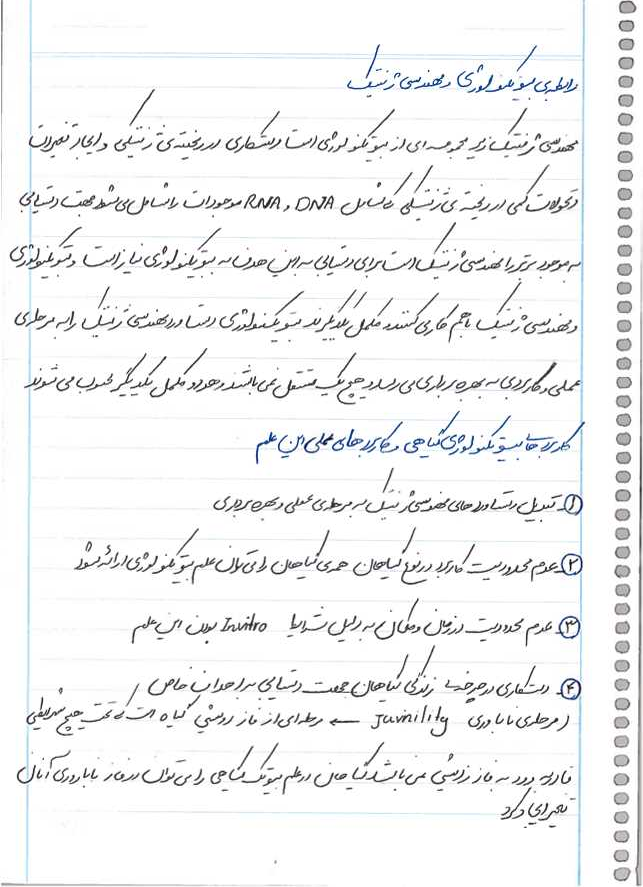 رابطه ی بیوتکنولوژی و مهندسی ژنتیک
مهندسی ژنتیک زیر مجموعه ای از بیوتکنولوژی است دستکاری در ریخته ی ژنتیکی و ایجاد تغییرات
و تحولات کمی در ریخته ی ژنتیکی که شامل DNA و RNA موجودات را شامل می شود جهت دستیابی
به موجود برتر را مهندسی ژنتیک است برای دستیابی به این هدف به بیوتکنولوژی نیاز است و بیوتکنولوژی
و مهندسی ژنتیک با هم کار می کنند و مکمل یکدیگرند بیوتکنولوژی دستاورد مهندسی ژنتیک را به مرحله ی
عملی و کاربردی به بهره برداری می رساند و هیچ یک مستقل نمی باشند و هر دو مکمل یکدیگر محسوب می شوند
کاربردها بیوتکنولوژی گیاهی و کاربردهای عملی این علم
۱- تبدیل دستاوردهای مهندسی ژنتیک به مرحله ی عملی و بهره برداری
۲- عدم محدودیت کاربرد در نوع گیاهان همه ی گیاهان را می توان علم بیوتکنولوژی ارائه نمود
۳- عدم محدودیت در زمان و مکان به دلیل شرایط Invitro بودن این علم
۴- دستکاری در چرخه زندگی گیاهان جهت دستیابی به اهداف خاص
( مرحله ی نا باروری Juvnility ← مرحله ای از فاز رویشی گیاه است که تحت هیچ شرایطی
قادر به ورود به فاز زایشی نمی باشد گیاهان در علم بیوتک گیاهی را می توان در فاز ناباروری آنان
تغییر ایجاد کرد